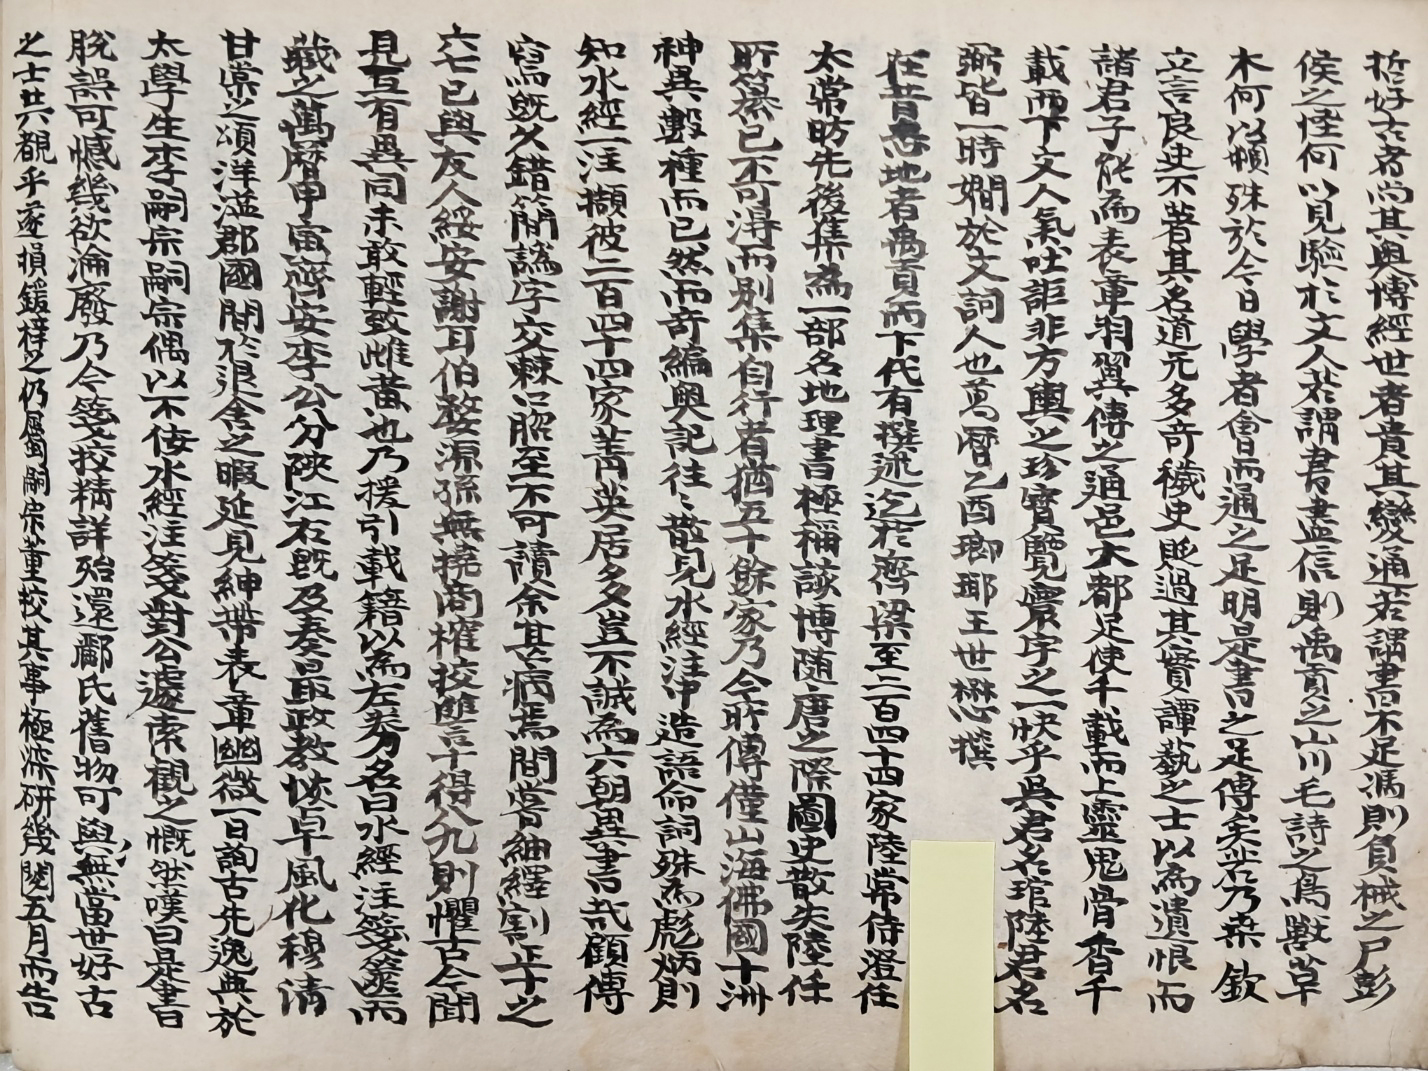 哲好古者尚其奥博經世者貴其變通若謂書不足馮則負械之尸彭
侯之怪何以見驗於文人若謂書盡信則禹貢之山川毛詩之鳥獸草
木何以頓殊於今日學者會而通之足明是書之足傳矣若乃桒欽
立言良史不著其名道元多奇穢史貶過其實譚藝之士以為遺恨而
諸君子能為表章羽翼傳之通邑大都足使千載而上靈鬼骨香千
載而下文人氣吐詎非方輿之珍寶覽寰宇之一快乎吳君名琯陸君名
弼皆一時嫺於文詞人也萬曆乙酉瑯琊王世懋撰
在昔志地者禹貢而下代有撰述迄於齊梁至二百四十四家陸常侍澄任
太常昉先後集為一部名地理書極稱該博隨唐之際圖史散失陸任
所纂已不可得而別集自行者猶五十餘家乃今所傳僅山海佛國十洲
神異數種而已然而奇編奥記往〻散見水經注中造語命詞殊為彪炳則
知水經一注擷彼二百四十四家菁英居多豈不誠為六朝異書哉顧傳
寫既久錯簡譌字交棘口吻至不可讀余甚病焉間嘗紬繹割正十之
六七已與友人綏安謝耳伯婺源孫無撓商榷校讐十得八九則懼古今聞
見互有異同未敢輕致雌黃也乃援引載籍以為左券名曰水經注箋篋而
藏之萬曆甲寅齊安李公分陜江右既及奏最政教恢卓風化穆清
甘棠之頌洋溢郡國間於退舍之暇延見紳帶表章幽微一日詢古先逸典於
太學生李嗣宗嗣宗偶以不佞水經注箋對公遽索觀之慨然嘆曰是書
脫誤可憾幾欲淪廢乃今箋挍精詳殆還酈氏舊物可與無當世好古
之士共覯乎遂損鍰梓之仍屬嗣宗董挍其事極深研幾閱五月而告